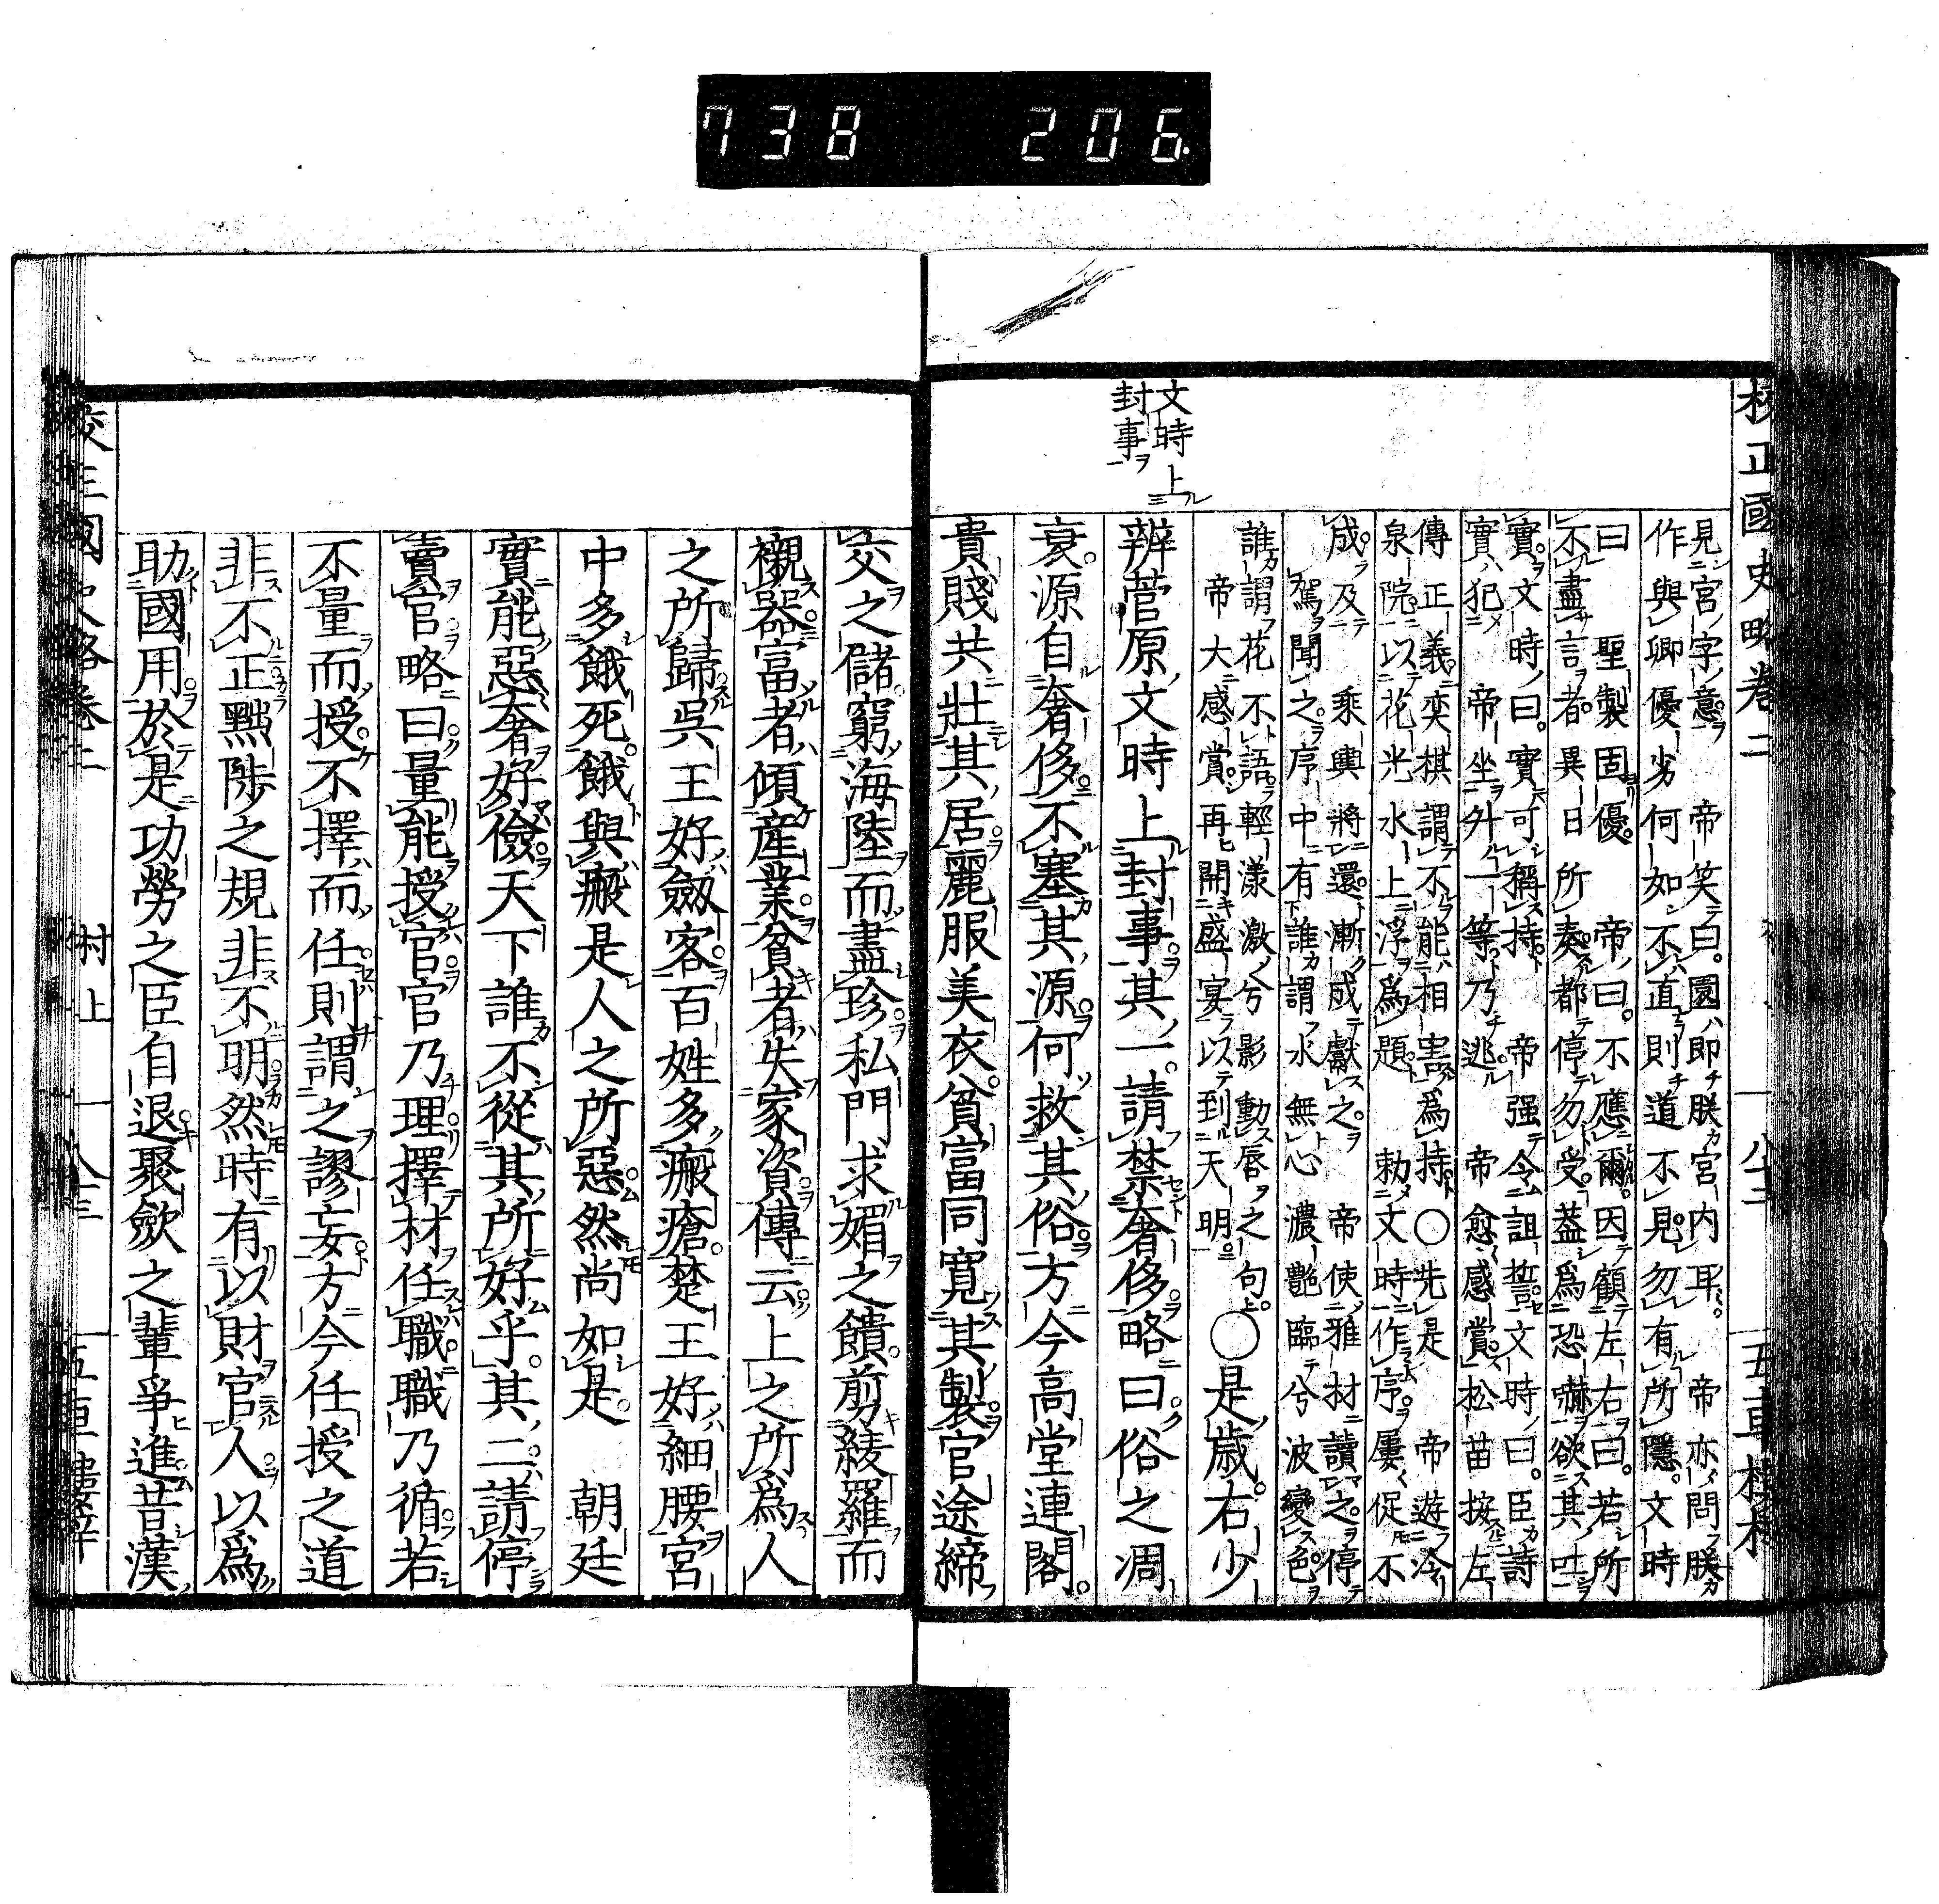 738 206
校正國史略卷二
八十二
文時上
封事
見宮字意 帝笑曰園即朕宮内耳 帝亦問朕
作與卿優劣何如不直則道不見勿有所隱文時
曰 聖製固優 帝曰不應爾因顧左右曰若所
不盡言者異日所奏都停勿受葢爲恐嚇欲其吐
實文時曰實可稱持 帝强令詛誓文時曰臣詩
實犯 帝坐外一等乃逃 帝愈感賞松苗按左
傳正義奕棋謂不能相害爲持〇先是 帝遊冷
泉院以花光水上浮爲題 勅文時作序屢促不
成及 乘輿將還漸成獻之 帝使雅材讀之停
駕聞之序中有誰謂水無心濃艶臨兮波變色
誰謂花不語輕漾激兮影動唇之句〇是歳右少
帝大感賞再開盛宴以到天明
辨菅原文時上封事其一請禁奢侈略曰俗之凋
衰源自奢侈不塞其源何救其俗方今高堂連閣
貴賤共壯其居麗服美衣貧富同寛其製官途締
交之儲窮海陸而盡珍私門求媚之饋剪綾羅而
襯器富者傾産業貧者失家資傳云上之所爲人
之所歸呉王好劔客百姓多瘢瘡楚王好細腰宮
中多餓死餓與瘢是人之所惡然尚如是 朝廷
實能惡奢好儉天下誰不從其所好乎其二請停
賣官略曰量能授官官乃理擇材任職職乃循若
不量而授不擇而任則謂之謬妄方今任授之道
非不正黜陟之規非不明然時有以財官人以爲
助國用於是功勞之臣自退聚歛之輩爭進昔漢
村上